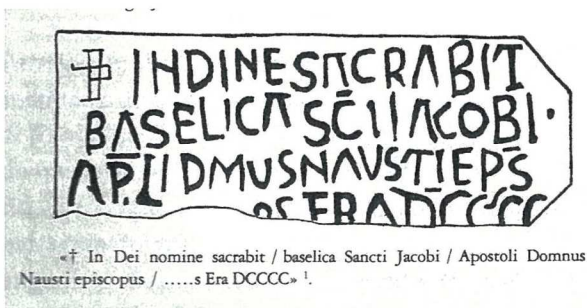 ☩ INDINESACRABIT
BASELICA SCI IACOBI·
APLI DMUSNAUSTIEPS
OS ERADCCCC
«† In Dei nomine sacrabit / baselica Sancti Jacobi / Apostoli Domnus
Nausti episcopus / .....s Era DCCCC» ¹.